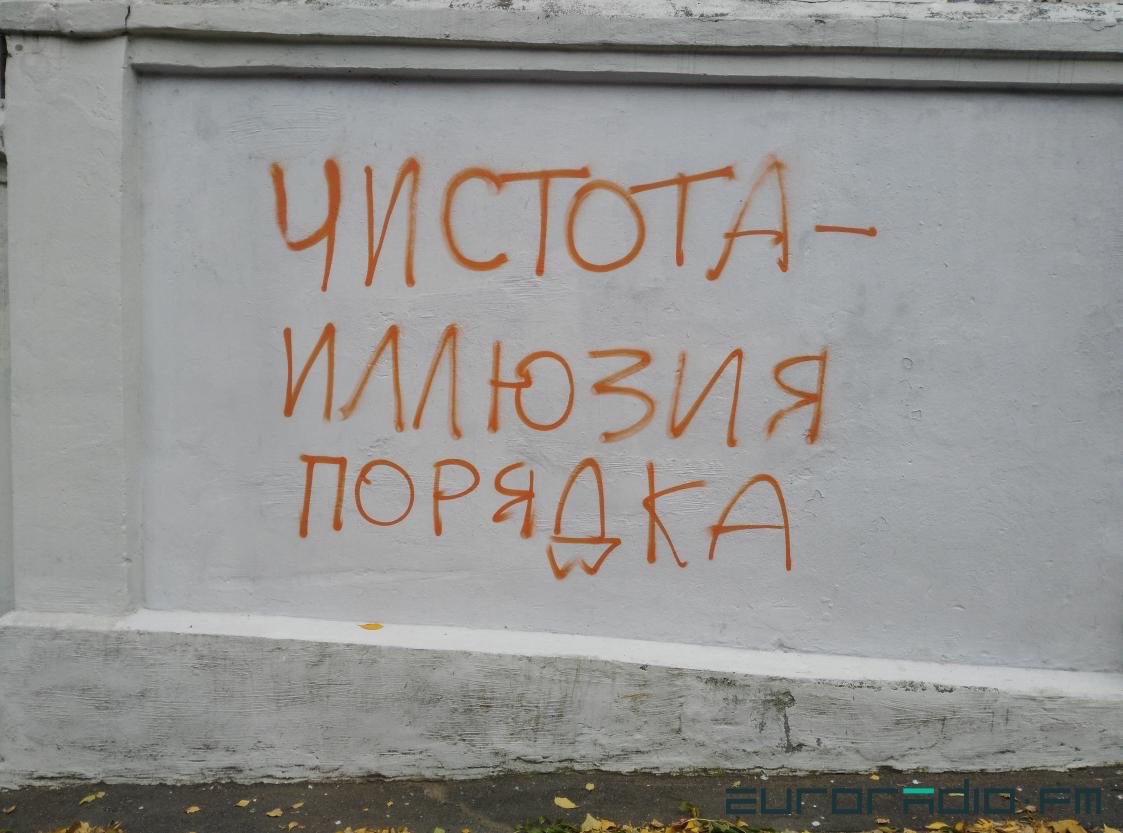 ЧИСТОТА-
ИЛЛЮЗИЯ
ПОРЯДКА
euroradio.fm